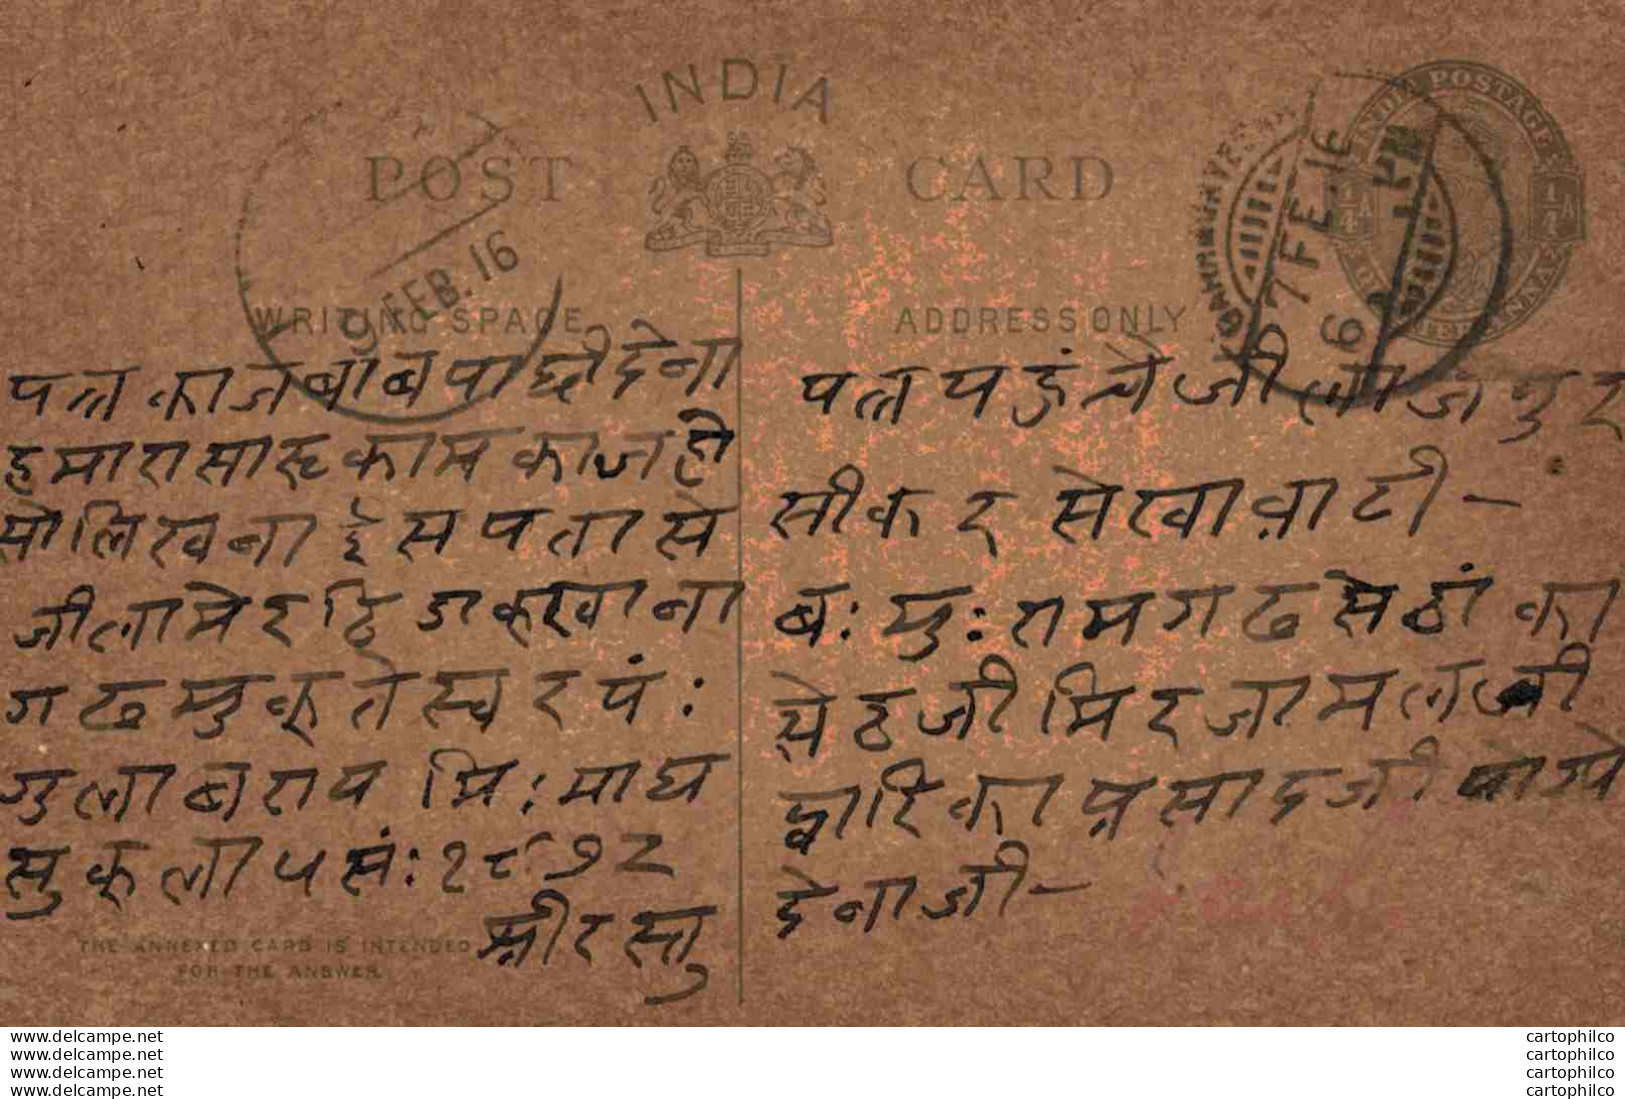 INDIA
POST CARD
INDIA POSTAGE
1/4 A 1/4 A
9 FEB. 16
7 FE. 16
WRITING SPACE
पत्र का जबाब पाछी देना
हमारा सारू काम काज हो
सो लिखना ईस पता से
जीला मेरठि डाकखाना
गढमुकतेस्वर पं:
गुलाबराय मि: माघ
सुकला ५ सं: १९७२
श्रीरस्तु
THE ANNEXED CARD IS INTENDED
FOR THE ANSWER.
ADDRESS ONLY
पत्र पहुंचे जीला जेपुर
सीकर सेखावाटी -
ब: मु: रामगढ सेठां का
सेठजी मिरजामलजी
द्वारिकाप्रसादजी जोग्ये
देनाजी -
www.delcampe.net
www.delcampe.net
www.delcampe.net
www.delcampe.net
cartophilco
cartophilco
cartophilco
cartophilco